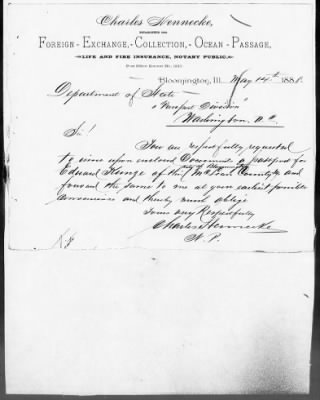 Charles Hennecke,
FOREIGN-EXCHANGE,-COLLECTION,-OCEAN-PASSAGE,
LIFE AND FIRE INSURANCE, NOTARY PUBLIC.
Bloomington, Ill. May 14th 1881.
Department of State
"Passport Division"
Washington D.C.
Sir!
You are respectfully requested
to issue upon enclosed Document a passport for
Eduard of this McLean County
and
forward the same to me at your earliest possible
convenience and thereby much oblige
Yours very Respectfully
Charles Hennecke
N. P.